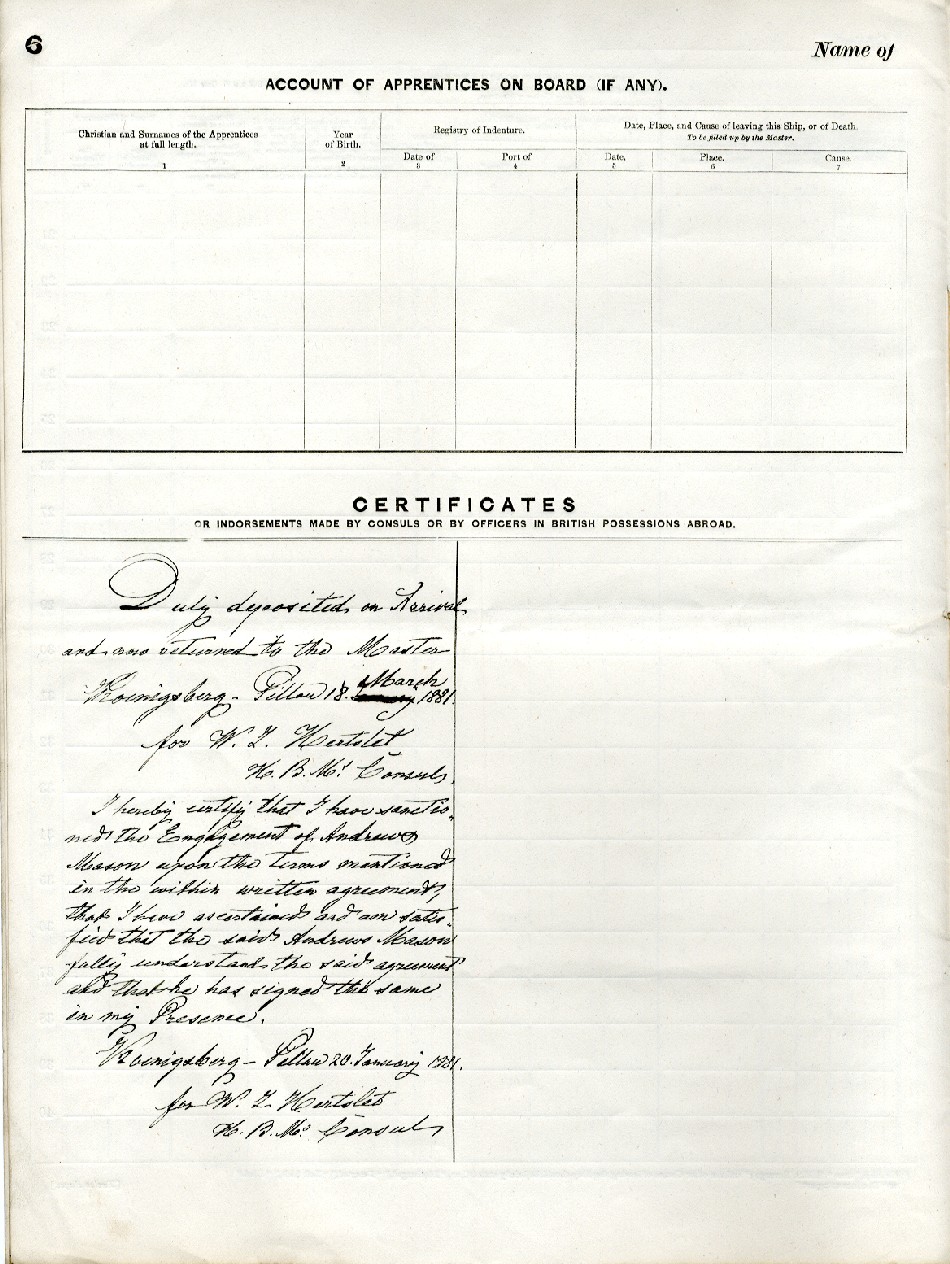 6
Name of
ACCOUNT OF APPRENTICES ON BOARD (IF ANY).
Christian and Surnames of the Apprentices
at full length.
1
Year
of Birth.
2
Registry of Indenture.
Date of
3
Port of
4
Date, Place, and Cause of leaving this Ship, or of Death.
To be filed up by the Master.
Date.
5
Place.
6
Cause.
7
CERTIFICATES
OR INDORSEMENTS MADE BY CONSULS OR BY OFFICERS IN BRITISH POSSESSIONS ABROAD.
Duly deposited on Arrival
and was returned to the Master
March
Koenigsberg - Pillau 18. January 1881.
for W. J. Hertslet
H. B. M's Consul,
I hereby certify that I have sanctio-
ned the Engagement of Andrews
Mason upon the terms mentioned
in the within written agreement,
that I have ascertained and am satis-
fied that the said Andrews Mason
fully understands the said agreement
and that he has signed the same
in my Presence.
Koenigsberg - Pillau 20. January 1881.
for W. J. Hertslet
H. B. M's Consul,